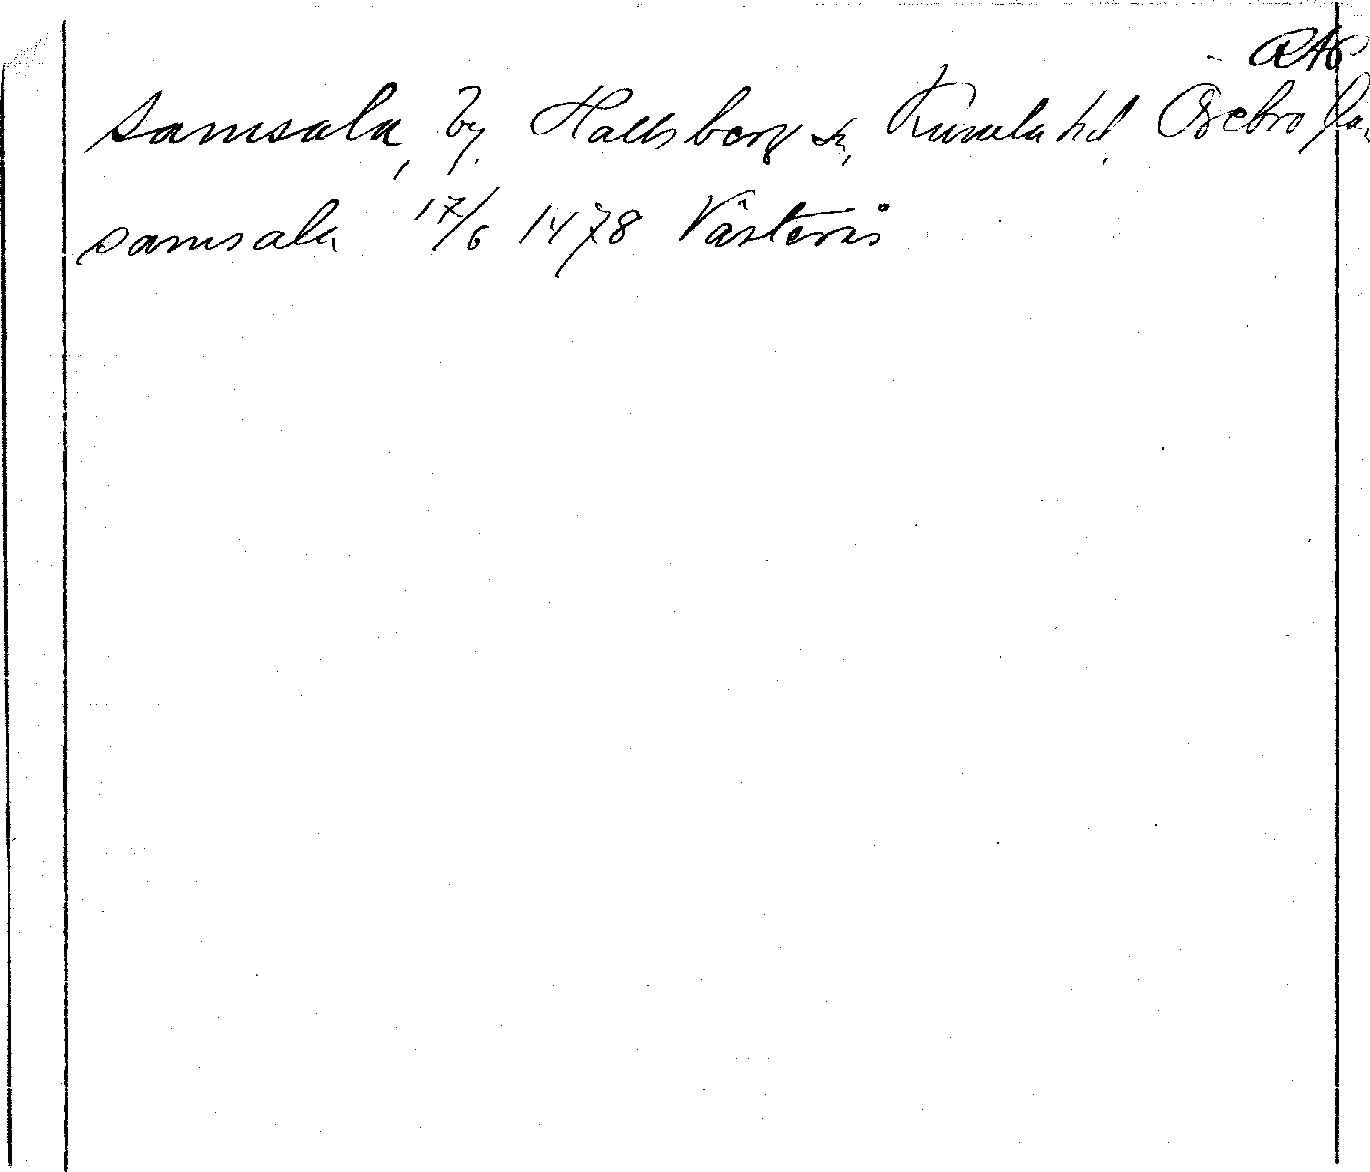 RAP
Samsala, by, Hallsberg sn, Kumla hd, Örebro län
samsala 17/6 1478 Västerås